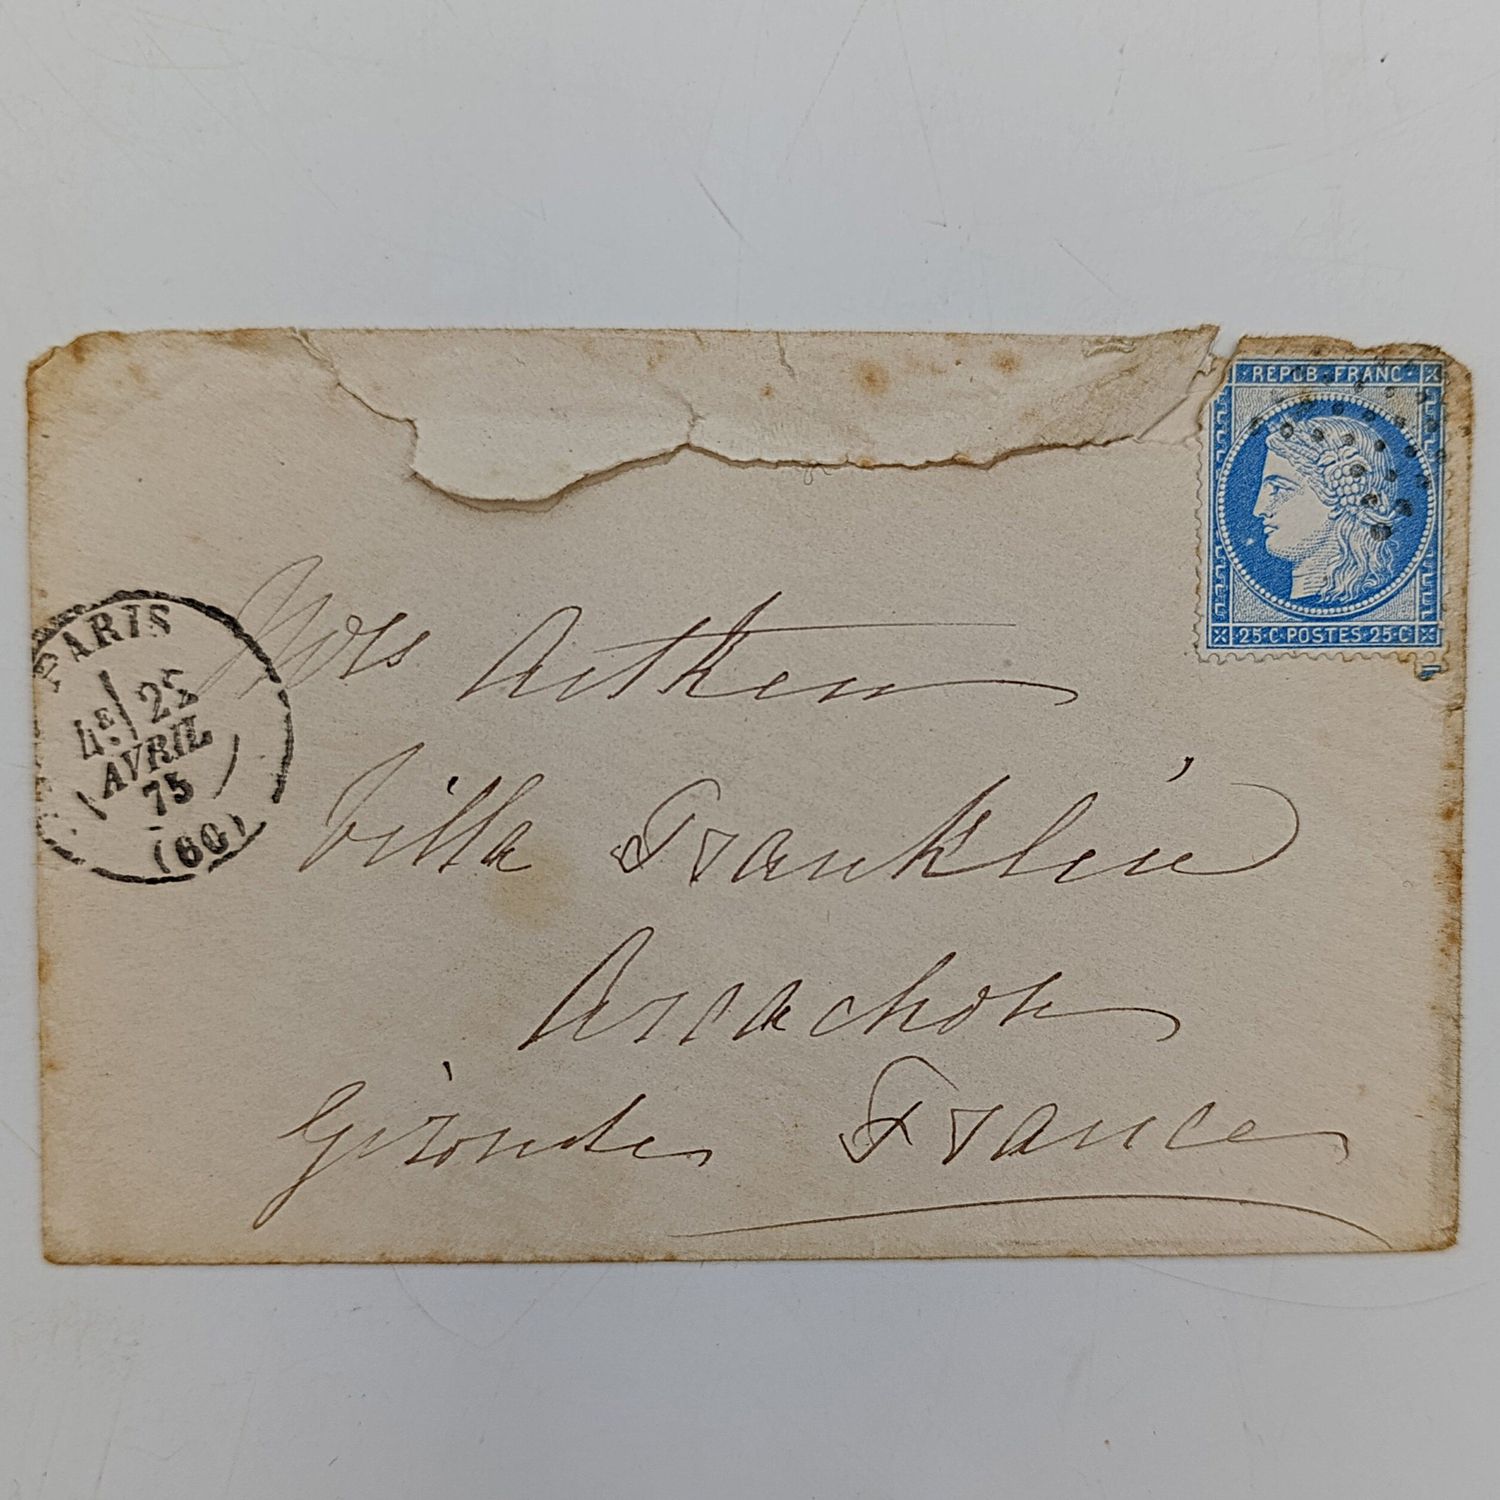 REPUB · FRANC ·
· 25 · C · POSTES · 25 · C ·
PARIS
4E 22
AVRIL
75
(60)
Mrs Aitken
Villa Franklin
Arcachon
Gironde France